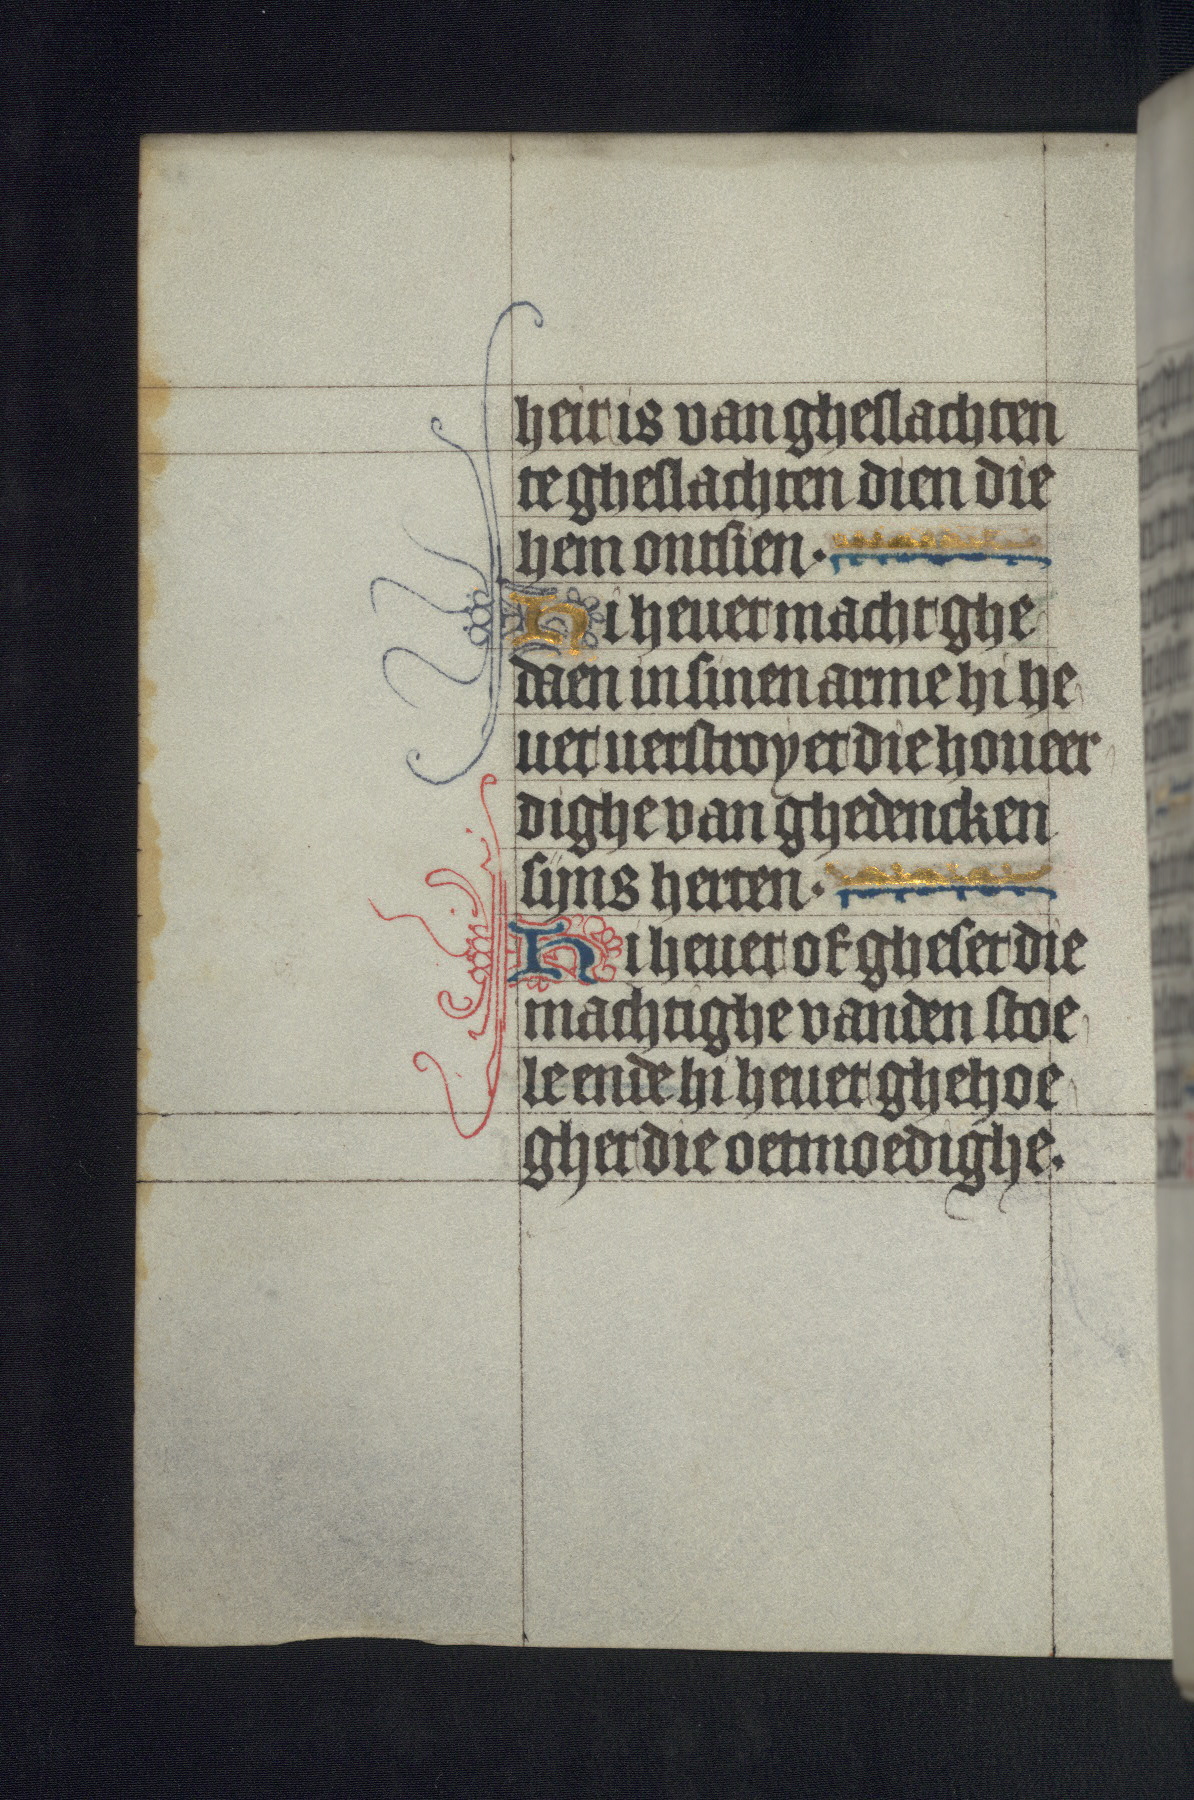 heit is van gheslachten
te gheslachten dien die
hem ontsien.
Hi heuet macht ghe
daen in sinen arme hi he
uet uerstroyet die houeer
dighe van ghedencken
sijns herten.
Hi heuet of gheset die
machtighe vanden stoe
le ende hi heuet ghehoe
ghet die oetmoedighe.